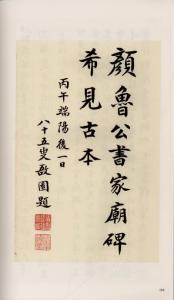 顏魯公書家廟碑
希見古本
丙午端陽後一日
八十五叟敬園題